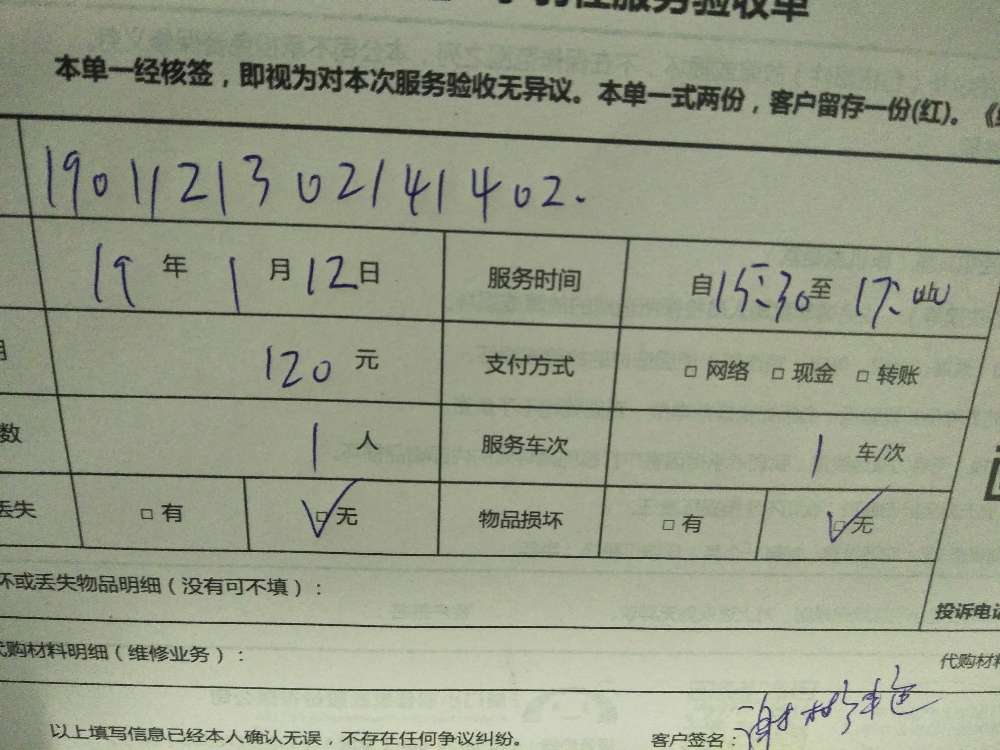 性服务验收单
本单一经核签，即视为对本次服务验收无异议。本单一式两份，客户留存一份(红)。
1901121302141402.
19年1月12日 服务时间 自15:30至17:
120元 支付方式 □网络 □现金 □转账
数 1人 服务车次 1车/次
丢失 □有 ☑无 物品损坏 □有 ☑无
坏或丢失物品明细（没有可不填）：
投诉电话
代购材料明细（维修业务）：
代购材料
以上填写信息已经本人确认无误，不存在任何争议纠纷。 客户签名：